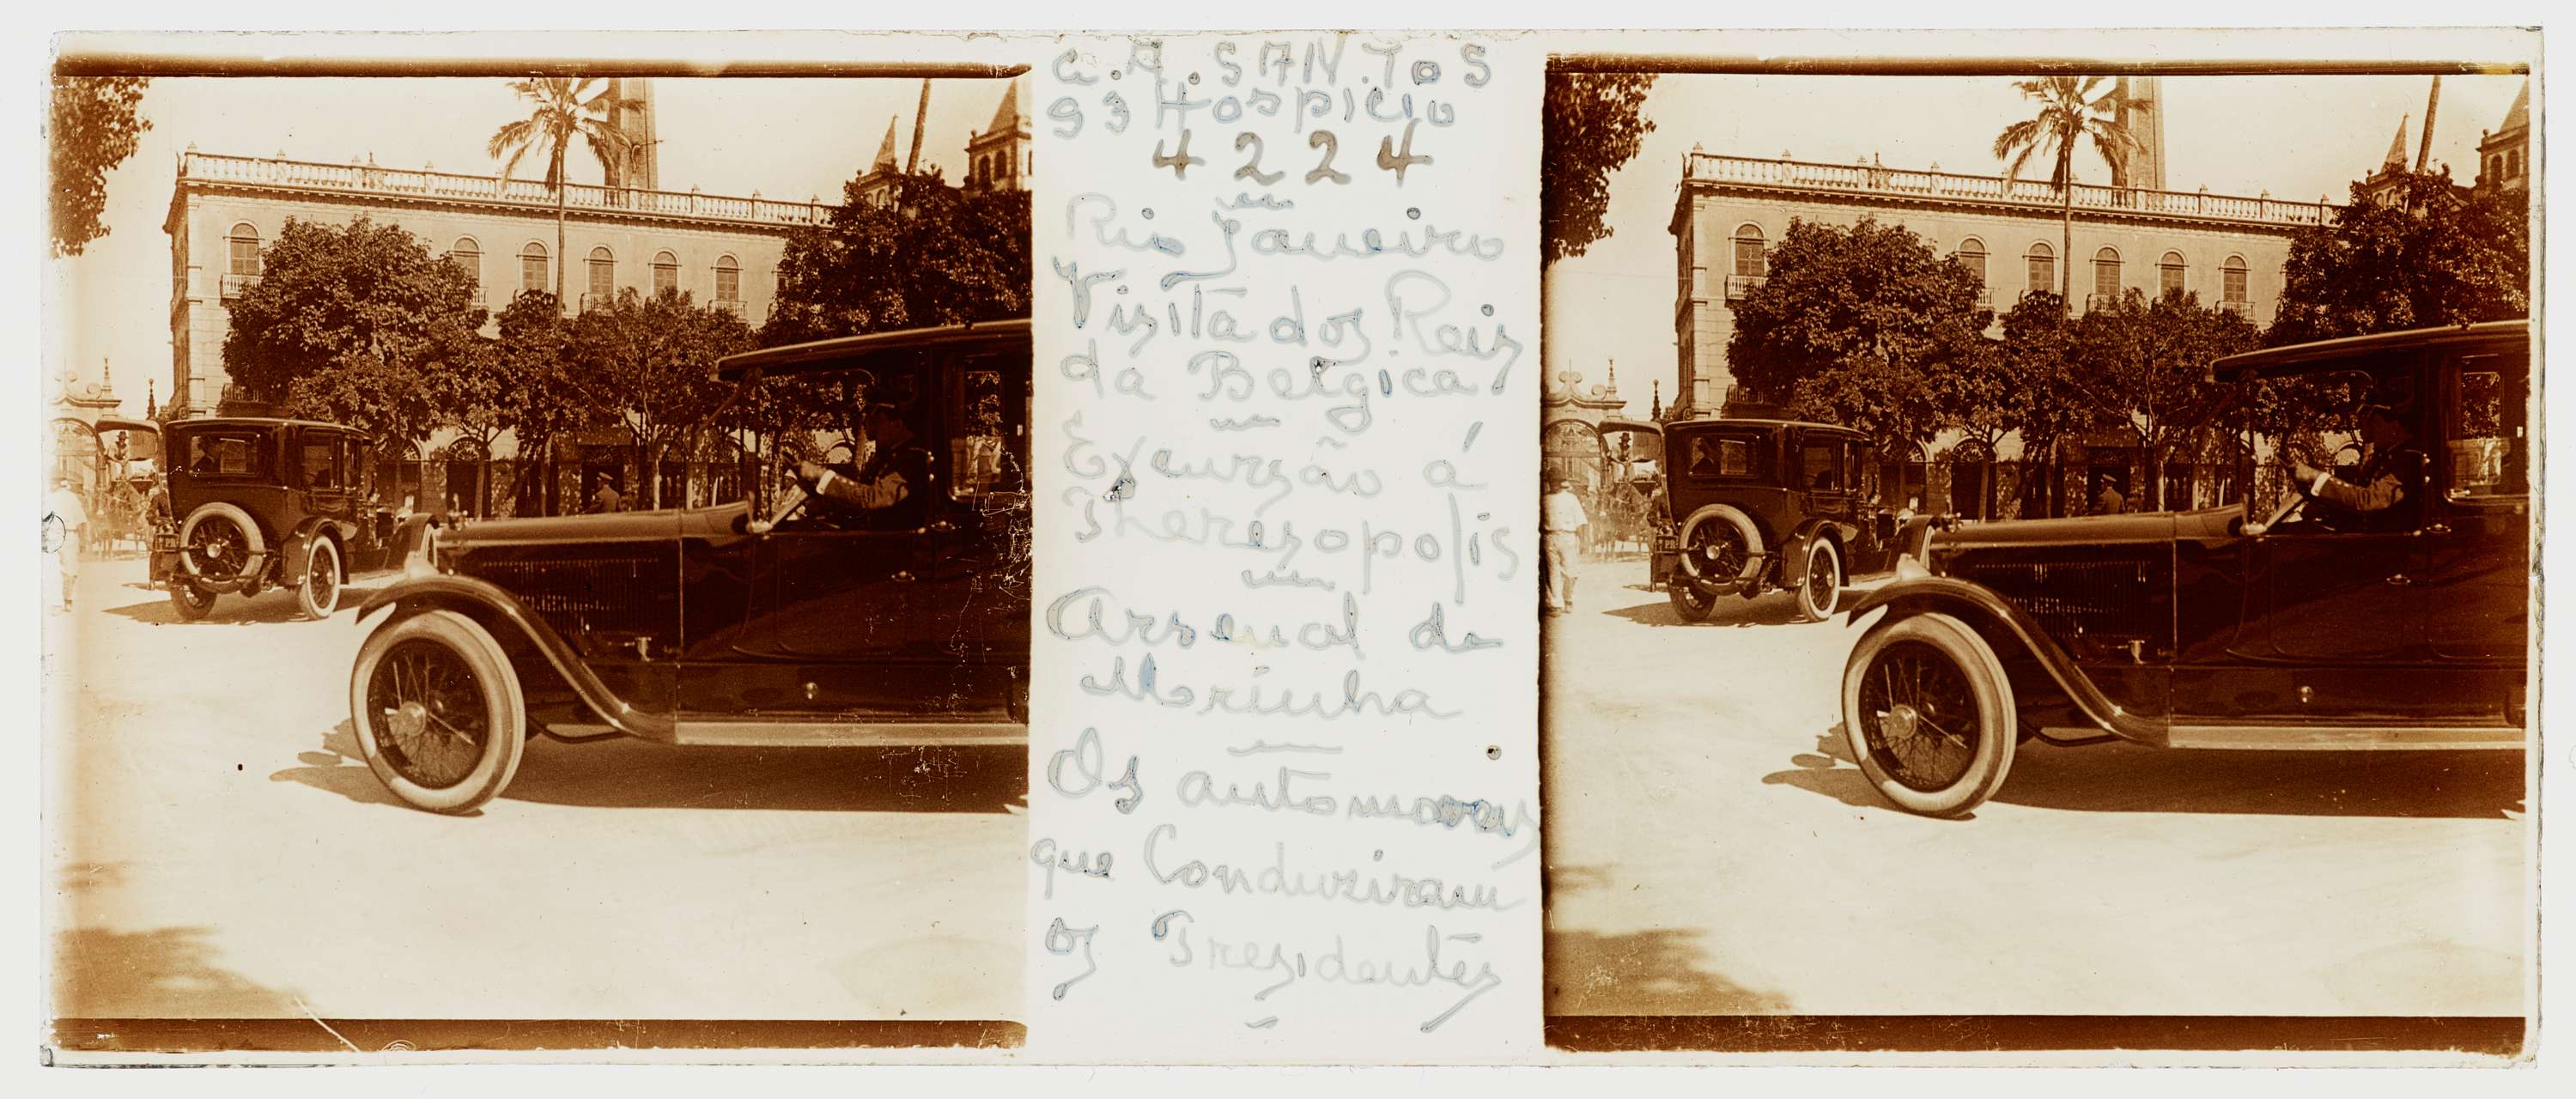 G.A.SANTOS
93 Hospicio
4224
Rio Janeiro
Visita dos Reis
da Belgica
Excursão á
Therezopolis
Arsenal de
Marinha
Os automoveis
que Conduziram
os Presidentes